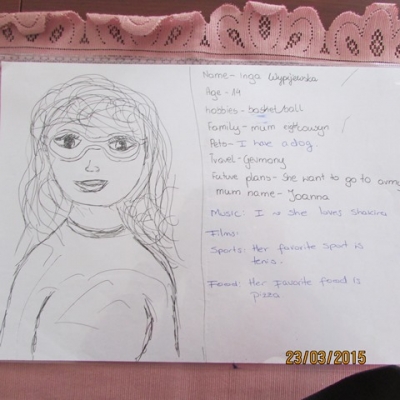 Name- Inga Wypijewska
Age - 14
hobbies- basket/ball
Family- mum
Pets- I have a dog.
Travel- Germany
Future plans- She want to go to army
mum name- Joanna
Music: I → she loves Shakira
Films:
Sports: Her favorite sport is
tenis.
Food: Her favorite food is
pizza
23/03/2015